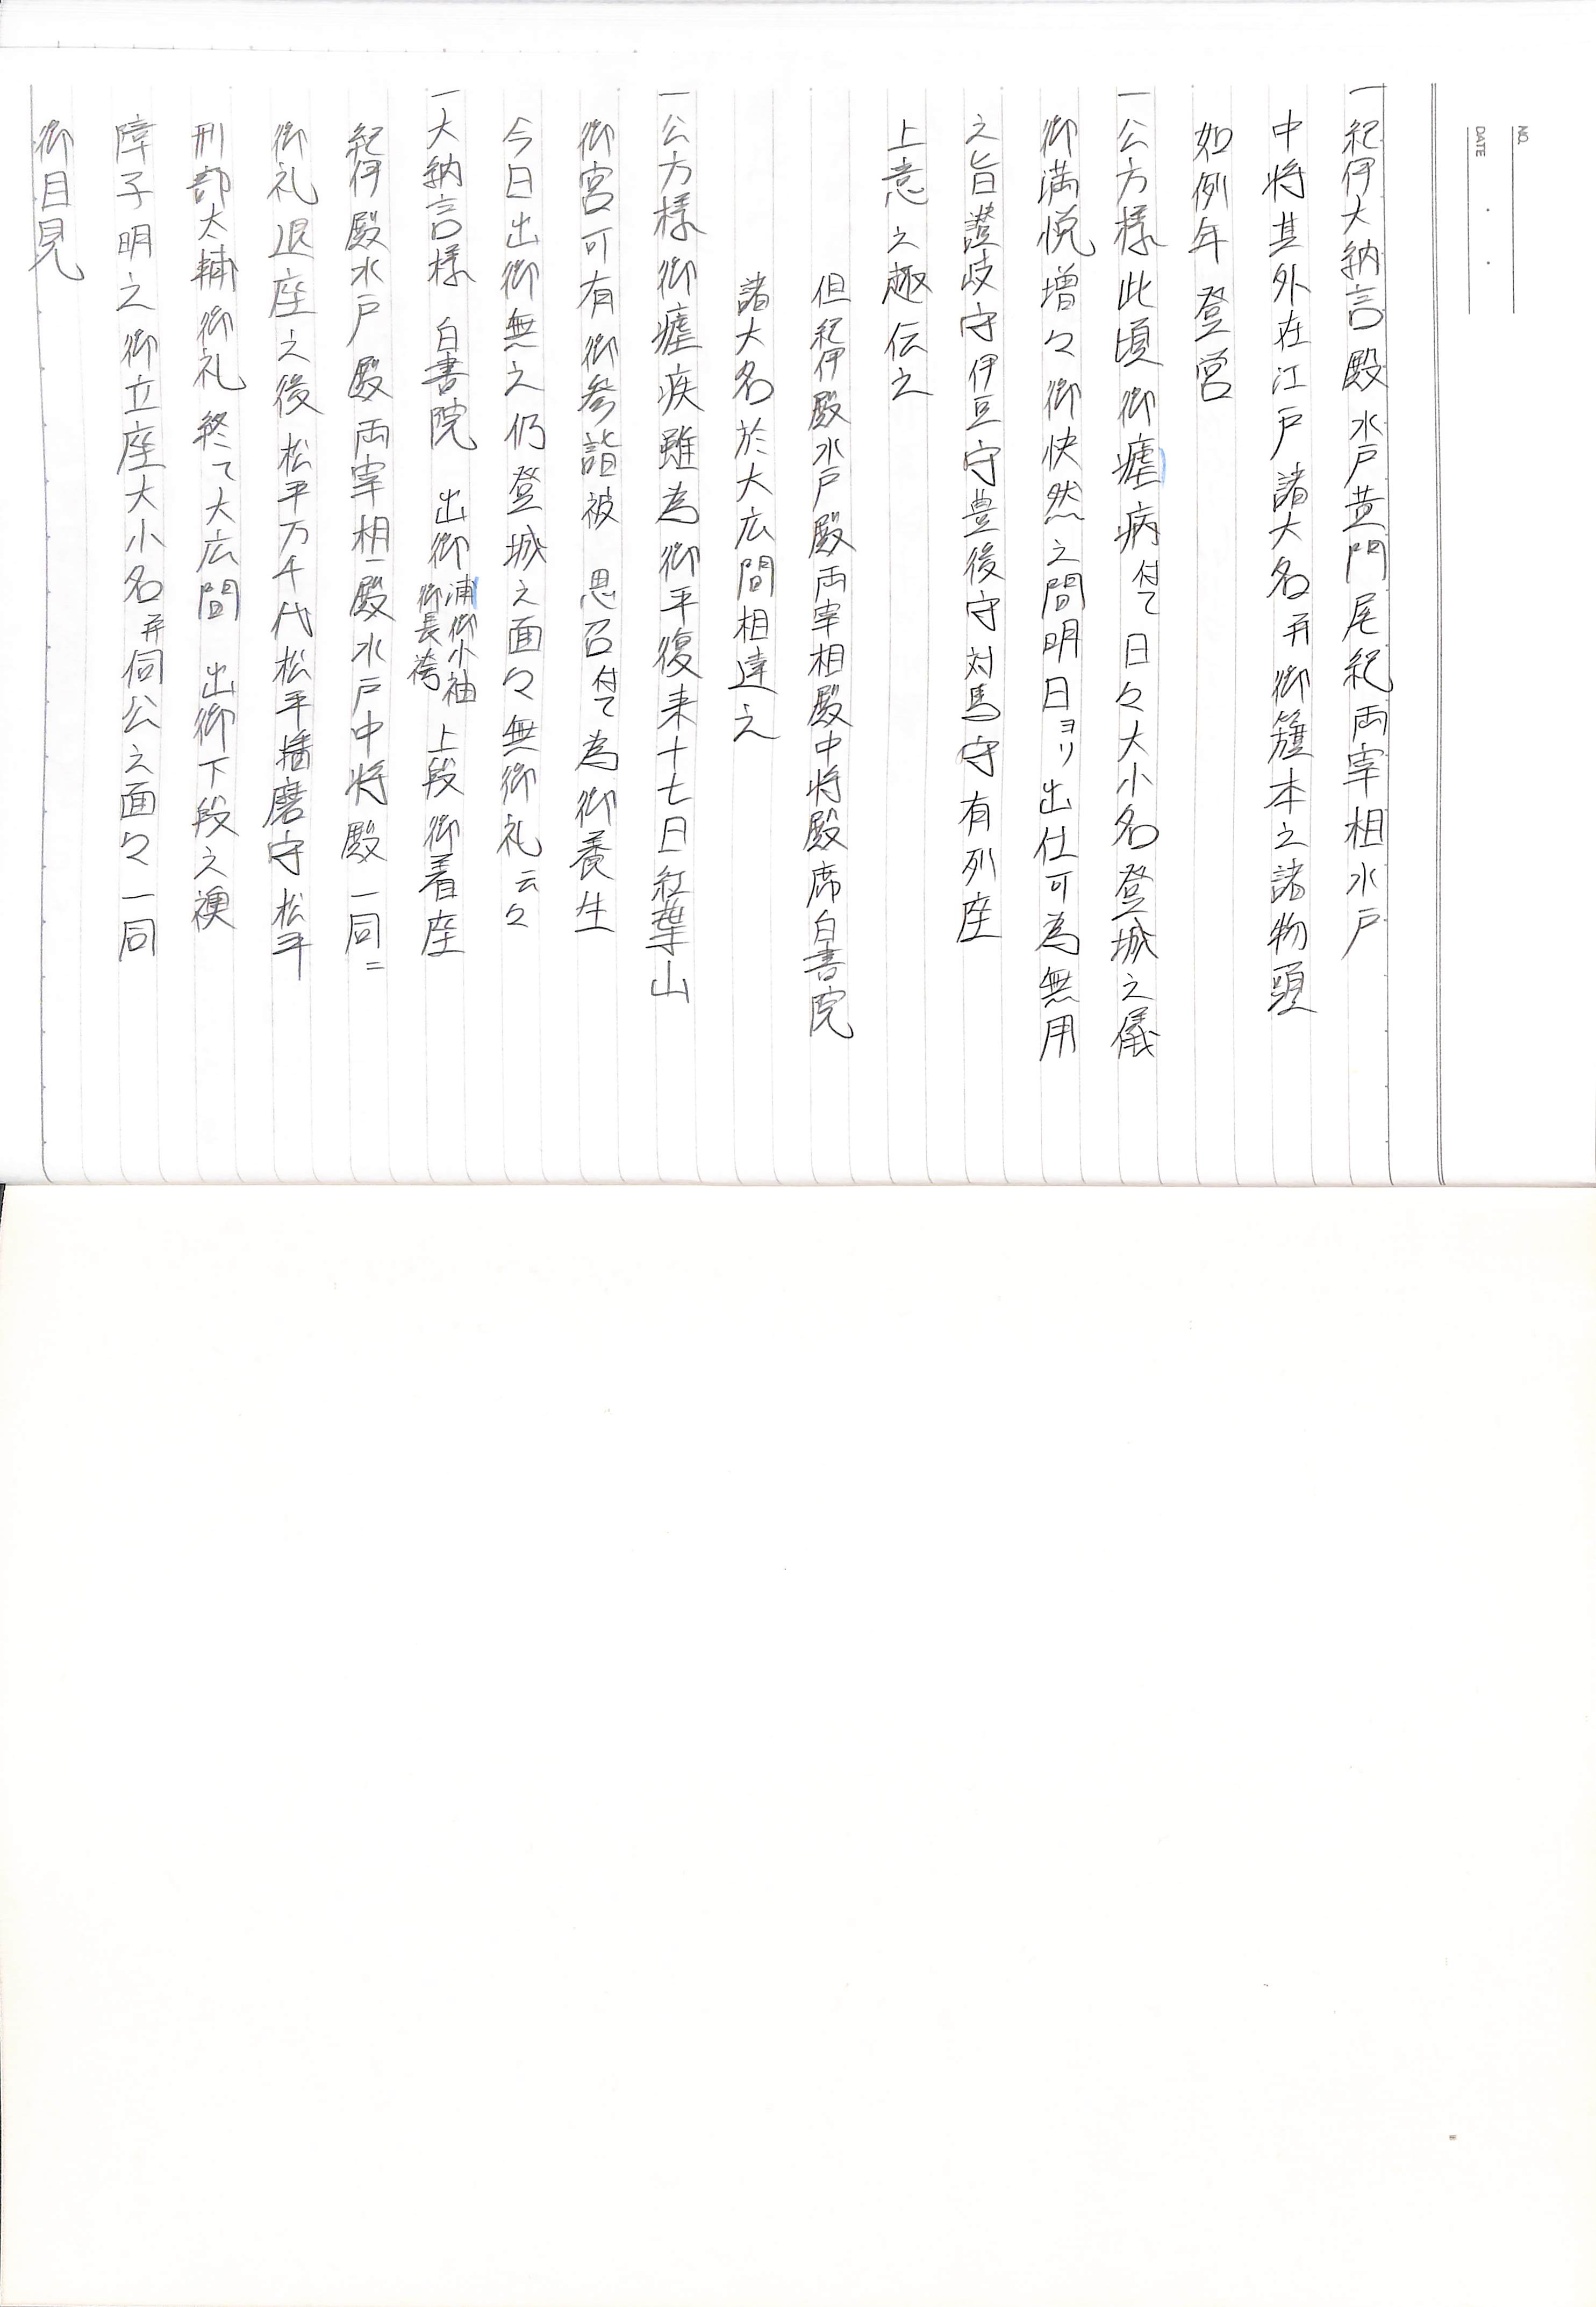 NO.
DATE ・ ・
一紀伊大納言殿水戸黄門尾紀両宰相水戸
中将其外在江戸諸大名并御籏本之諸物頭
如例年 登営
一公方様此頃御瘧病付て日々大小名登城之儀
御満悦増々御快然之間明日ヨリ出仕可為無用
之旨讃岐守伊豆守豊後守対馬守有列座
上意之趣伝之
但紀伊殿水戸殿両宰相殿中将殿席白書院
諸大名於大広間相達之
一公方様御瘧疾雖為御平復来十七日紅葉山
御宮可有御参詣被 思召付て為御養生
今日出御無之仍登城之面々無御礼云々
一大納言様 白書院 出御浦御小袖御長袴 上段御着座
紀伊殿水戸殿両宰相殿水戸中将殿一同ニ
御礼退座之後松平万千代松平播磨守松平
刑部大輔御礼終て大広間 出御下段之襖
障子明之御立座大小名并伺公之面々一同
御目見